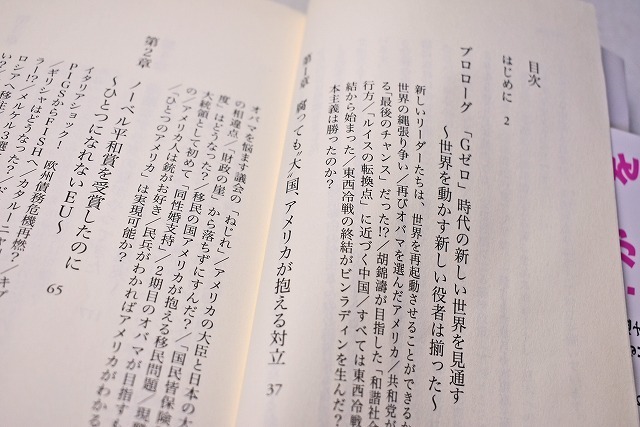 目次
はじめに 2
プロローグ 「Gゼロ」時代の新しい世界を見通す
～世界を動かす新しい役者は揃った～
新しいリーダーたちは、世界を再起動させることができるか
世界の縄張り争い／再びオバマを選んだアメリカ／共和党が
る「最後のチャンス」だった!?／胡錦濤が目指した「和諧社会
行方／「ルイスの転換点」に近づく中国／すべては東西冷戦
結から始まった／東西冷戦の終結がビンラディンを生んだ？
本主義は勝ったのか？
第1章 腐っても“大”国 アメリカが抱える対立 37
オバマを悩ます議会の「ねじれ」／アメリカの大臣と日本の大
の相違点／「財政の崖」から落ちずにすんだ？／「国民皆保険
度」はどうなった？／移民の国アメリカが抱える移民問題／現職
大統領として初めて「同性婚支持」／2期目のオバマが目指すも
の／アメリカ人は銃がお好き／民兵がわかればアメリカがわかる
／「ひとつのアメリカ」は実現可能か？
第2章 ノーベル平和賞を受賞したのに
～ひとつになれないEU～ 65
イタリアショック！ 欧州債務危機再燃？／キプ
PIGSからFISH
／ギリシャはどうなった？／カタルーニャ
ラー!?／メルケル3選